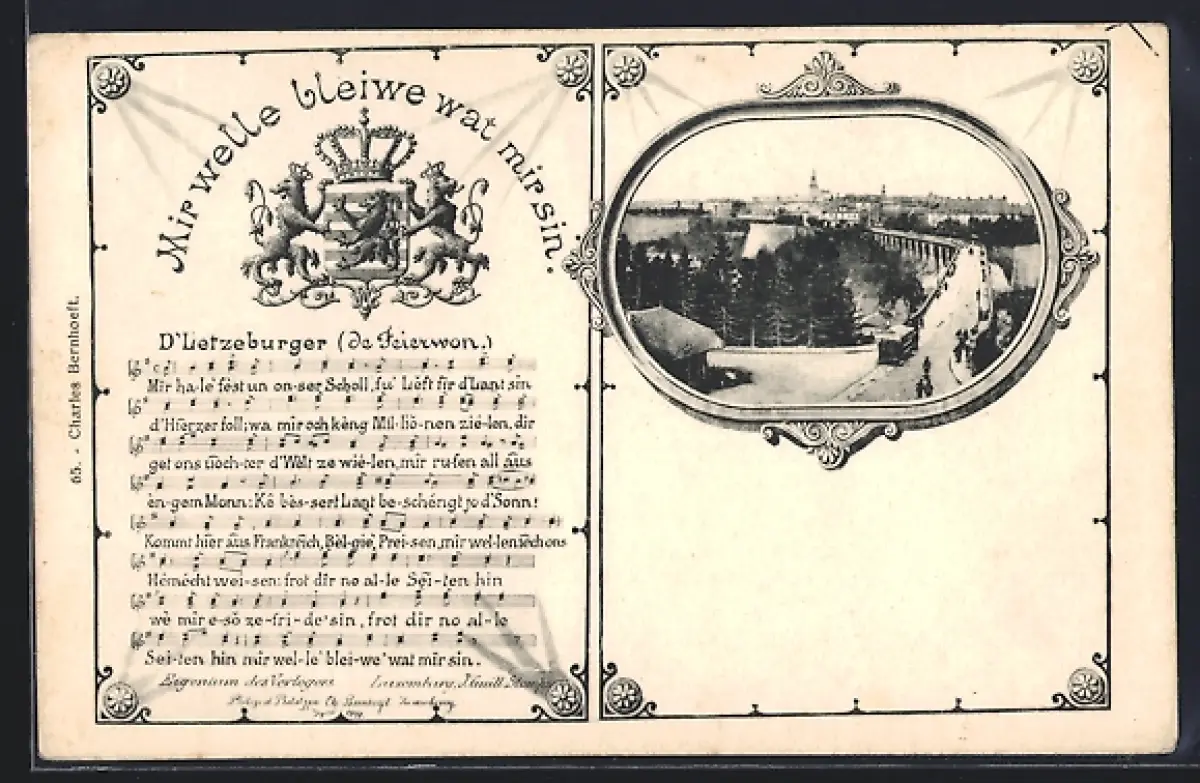 65. - Charles Bernhoeft.
Mir welle bleiwe wat mir sin.
D'Lietzeburger (de Feierwon.)
Mir ha-le' fést un on-ser Scholl, fu' Lièft fir d'Lant sin
d'Hierzer foll; wa mir och kèng Mil-lio-nen zié-len, dir
get ons doch-ter d'Welt ze wié-len, mir ru-fen all aus
èn-gem Monn: Kê bès-sert Lant be-schéngt jo d'Sonn!
Kommt hier aus Frankreich, Bèl-gie', Prei-sen, mir wel-len iech ons
Hémécht wei-sen: frot dir no al-le Sei-ten hin
wè mir e-sô ze-fri-de' sin, frot dir no al-le
Sei-ten hin mir wel-le' blei-we' wat mir sin.
Eigentum des Verlegers Luxemburg,